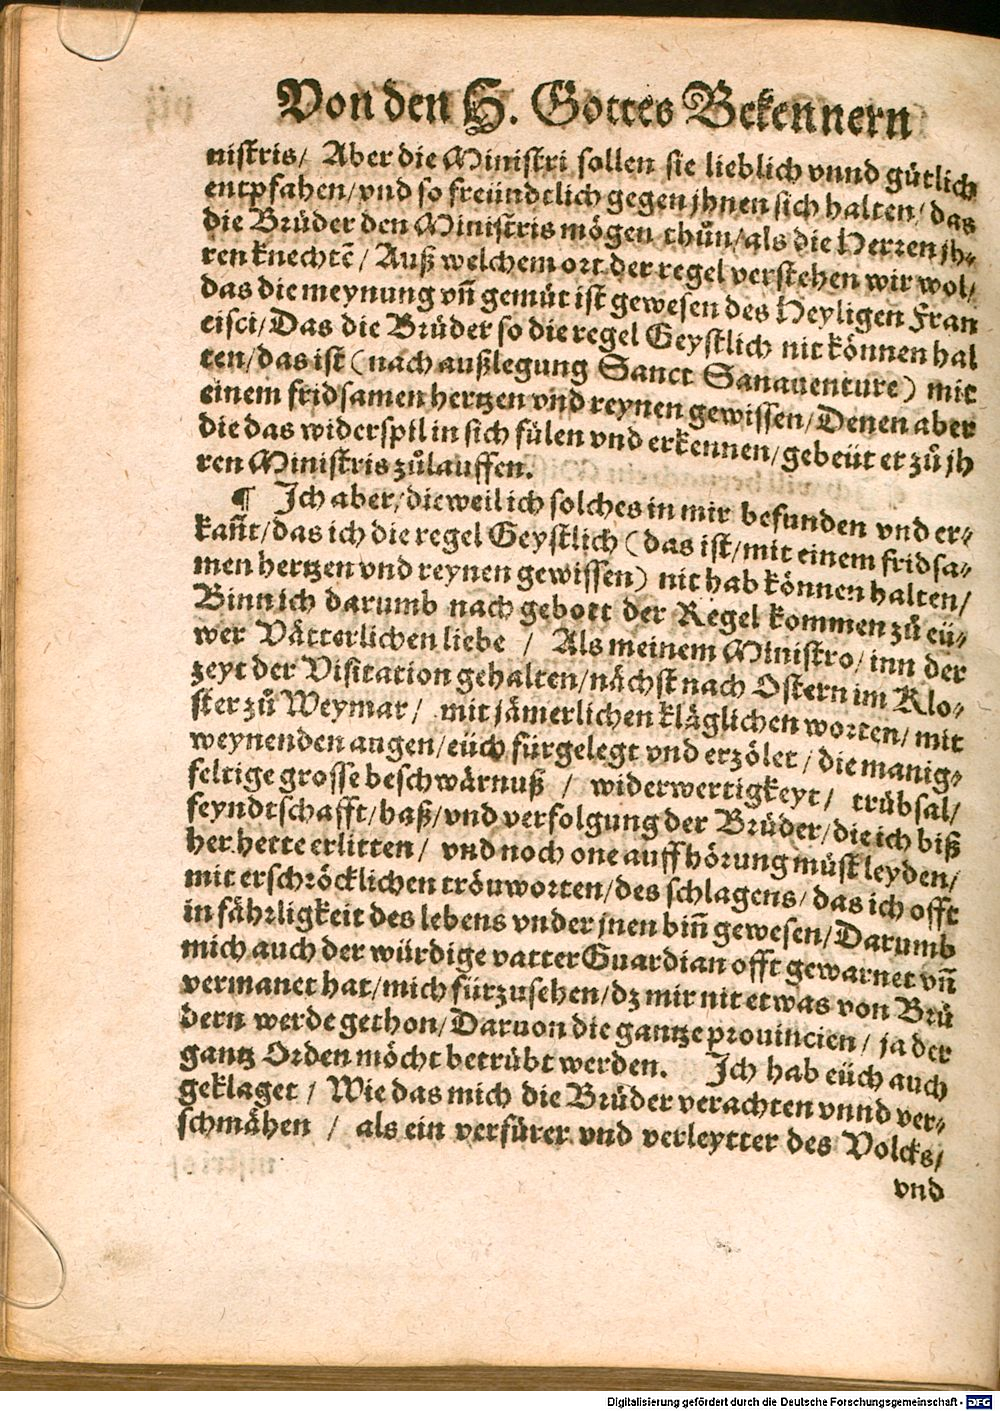 Von den H. Gottes Bekennern
nistris/ Aber die Ministri sollen sie lieblich vnnd gütlich
entpfahen/vnd so freündtlich gegen jhnen sich halten/das
die Brüder den Ministris mögen thůn/als die Herren jh-
ren knechtẽ/ Auß welchem ort der regel verstehen wir wol/
das die meynung vñ gemüt ist gewesen des Heyligen Fran
cisci/Das die Brüder so die regel Geystlich nit können hal
ten/das ist (nach außlegung Sanct Sanauenture) mit
einem fridsamen hertzen vnd reynen gewissen/Denen aber
die das widerspil in sich fülen vnd erkennen/gebeüt er zů jh
ren Ministris zůlauffen.
¶ Ich aber/dieweil ich solches in mir befunden vnd er-
kañt/das ich die regel Geystlich (das ist/mit einem fridsa-
men hertzen vnd reynen gewissen) nit hab können halten/
Binn ich darumb nach gebott der Regel kommen zů eü-
wer Vätterlichen liebe / Als meinem Ministro/inn der
zeyt der Visitation gehalten/nächst nach Ostern im Klo-
ster zů Weymar/ mit jämerlichen kläglichen worten/mit
weynenden augen/eüch fürgelegt vnd erzölet/die manig-
feltige grosse beschwärnuß / widerwertigkeyt/ trübsal/
feyndtschafft/haß/vnd verfolgung der Brüder/die ich biß
her hette erlitten/ vnd noch one auffhörung müst leyden/
mit erschröcklichen tröuworten/des schlagens/das ich offt
in fährligkeit des lebens vnder jnen biñ gewesen/Darumb
mich auch der würdige vatter Guardian offt gewarnet vñ
vermanet hat/mich fürzusehen/dz mir nit etwas von Brü
dern werde gethon/Daruon die gantze prouincien/ ja der
gantz Orden möcht betrübt werden. Ich hab eüch auch
geklaget / Wie das mich die Brüder verachten vnnd ver-
schmähen / als ein verfürer vnd verleytter des Volcks/
vnd
Digitalisierung gefördert durch die Deutsche Forschungsgemeinschaft - DFG